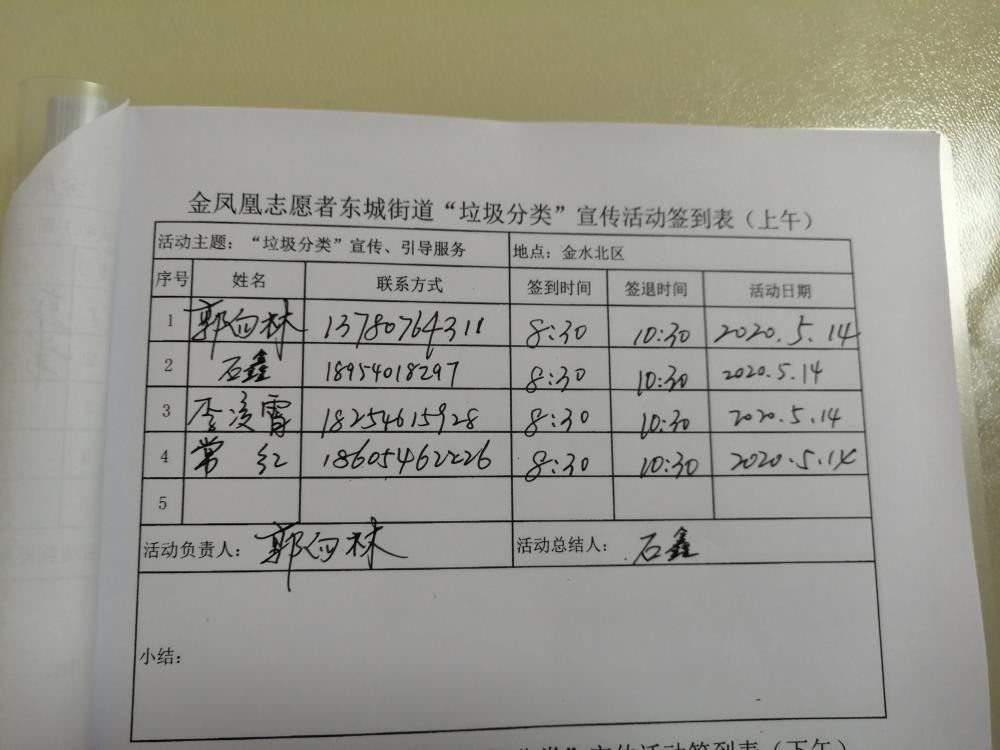 金凤凰志愿者东城街道“垃圾分类”宣传活动签到表（上午）
活动主题：“垃圾分类”宣传、引导服务 地点：金水北区
序号 姓名 联系方式 签到时间 签退时间 活动日期
1 郭向林 13780764311 8:30 10:30 2020.5.14
2 石鑫 18954018297 8:30 10:30 2020.5.14
3 李凌霄 18254615928 8:30 10:30 2020.5.14
4 常红 18605462226 8:30 10:30 2020.5.14
5
活动负责人：郭向林 活动总结人：石鑫
小结：
类”宣传活动签到表（下午）